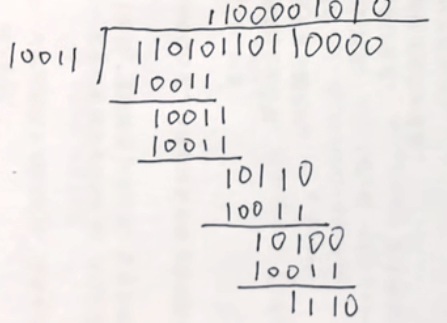 1100001010
10011 11010110110000
10011
10011
10011
10110
10011
10100
10011
1110